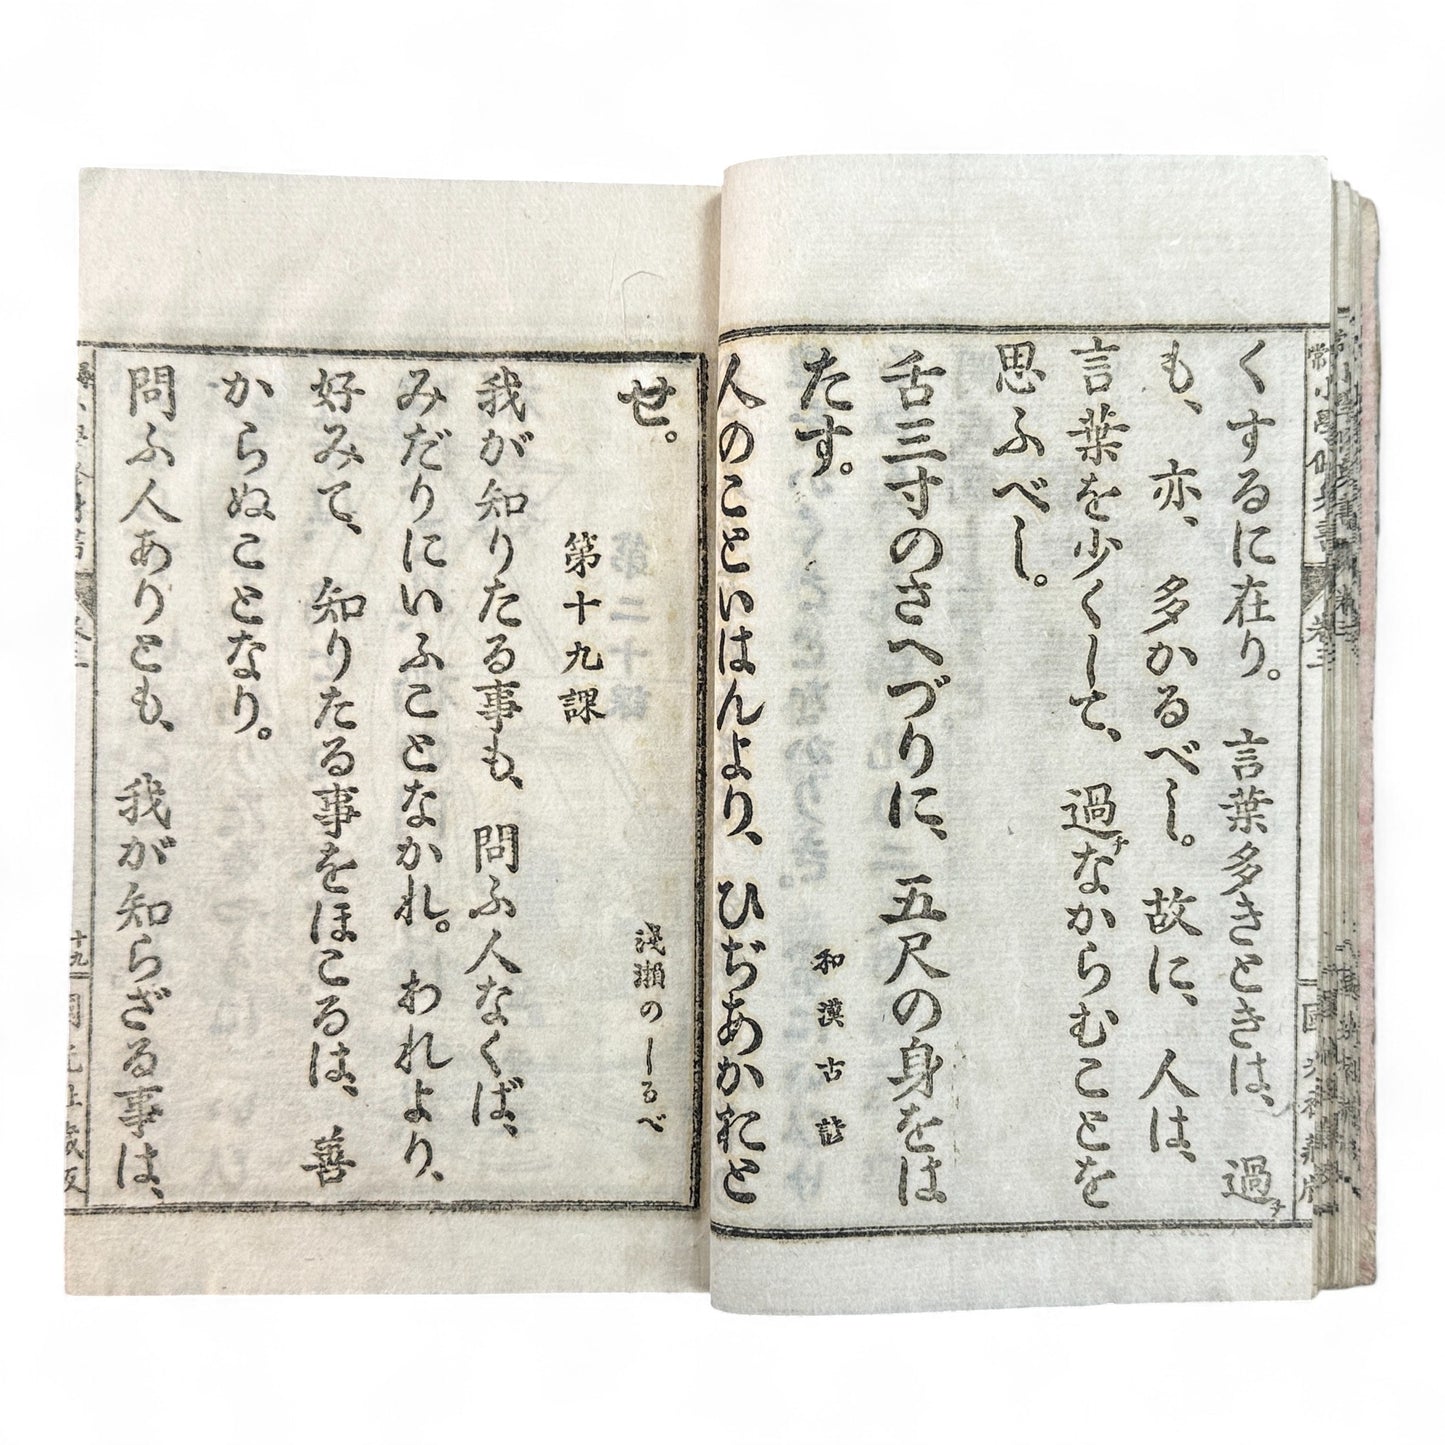 くするに在り。言葉多きときは、過チ
も、亦、多かるべし。故に、人は、
言葉を少くして、過チなからむことを
思ふべし。
舌三寸のさへづりに、五尺の身をは
たす。
和漢古諺
人のこといはんより、ひぢあかおと
せ。
淺瀬のしるべ
第十九課
我が知りたる事も、問ふ人なくば、
みだりにいふことなかれ。われより、
好みて、知りたる事をほこるは、善
からぬことなり。
問ふ人ありとも、我が知らざる事は、
卷三
十九
國光社藏版